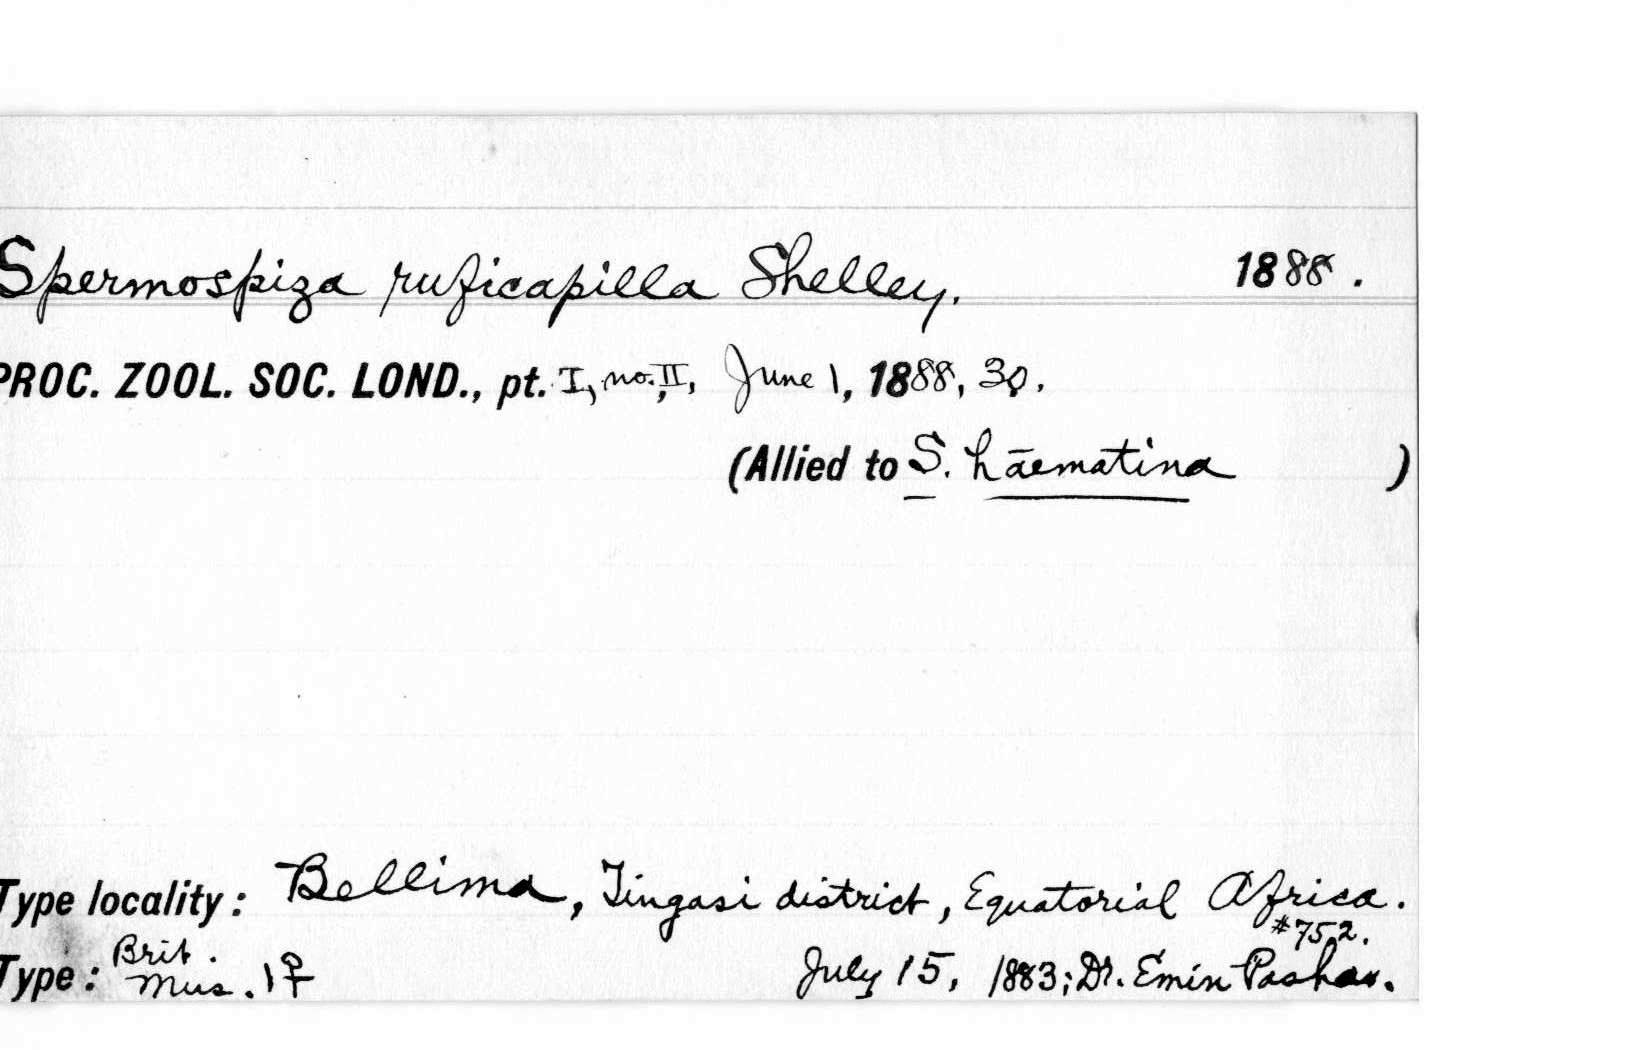 Spermospiza ruficapilla Shelley. 1888.
PROC. ZOOL. SOC. LOND., pt. I, no. II, June 1, 1888, 30.
(Allied to S. haematina )
Type locality: Bellima, Tingasi district, Equatorial Africa.
#752.
Type: Brit. Mus. 1♀ July 15, 1883; Dr. Emin Pasha.